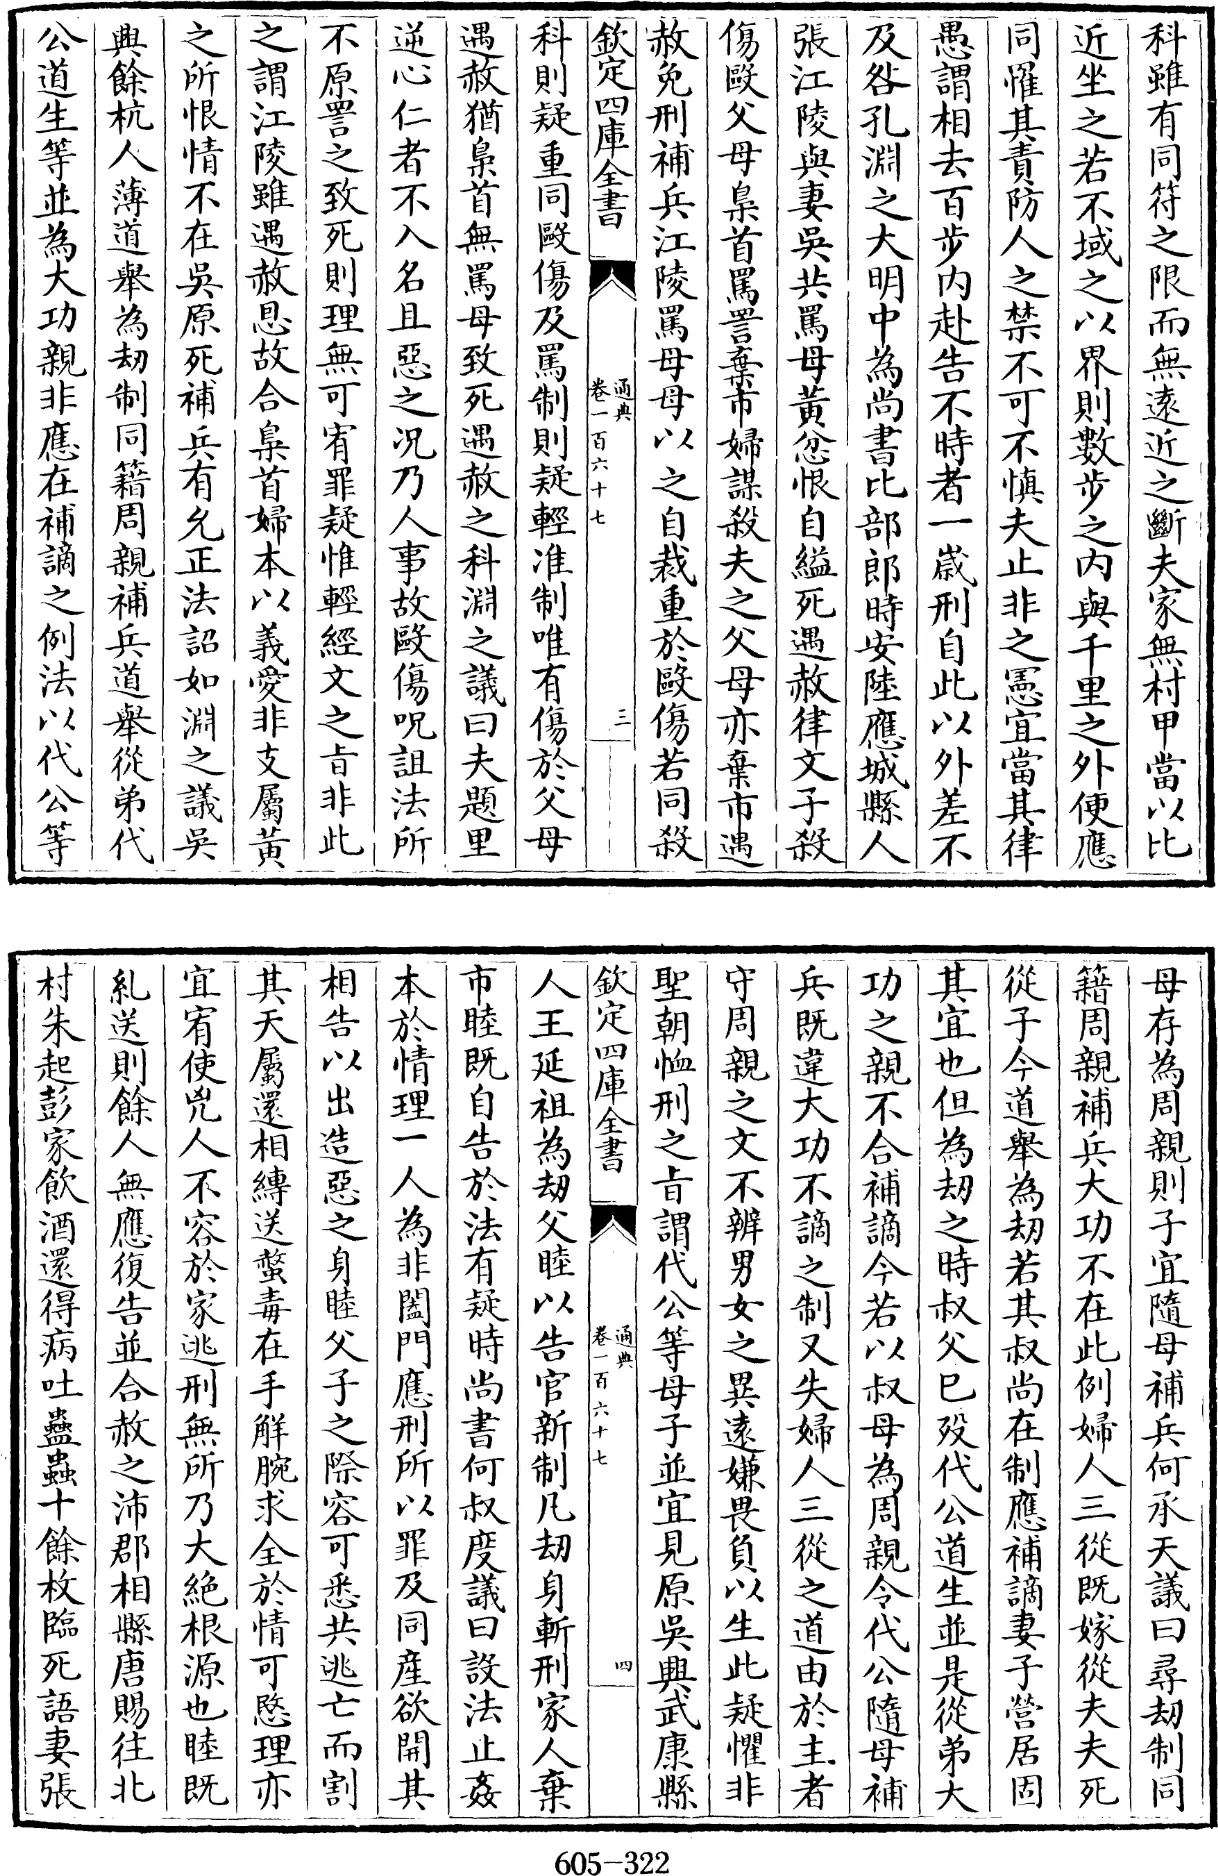 科雖有同符之限而無遠近之斷夫家無村甲當以比
近坐之若不域之以界則數步之內與千里之外便應
同罹其責防人之禁不可不慎夫止非之憲宜當其律
愚謂相去百步內赴告不時者一歲刑自此以外差不
及咎孔淵之大明中為尚書比部郎時安陸應城縣人
張江陵與妻吳共罵母黃忿恨自縊死遇赦律文子殺
傷毆父母梟首罵詈棄市婦謀殺夫之父母亦棄市遇
赦免刑補兵江陵罵母母以之自裁重於毆傷若同殺
欽定四庫全書
通典
卷一百六十七
三
科則疑重同毆傷及罵制則疑輕准制唯有傷於父母
遇赦猶梟首無罵母致死遇赦之科淵之議曰夫題里
逆心仁者不入名且惡之況乃人事故毆傷呪詛法所
不原詈之致死則理無可宥罪疑惟輕經文之旨非此
之謂江陵雖遇赦恩故合梟首婦本以義愛非支屬黃
之所恨情不在吳原死補兵有允正法詔如淵之議吳
興餘杭人薄道舉為劫制同籍周親補兵道舉從弟代
公道生等並為大功親非應在補謫之例法以代公等
母存為周親則子宜隨母補兵何承天議曰尋劫制同
籍周親補兵大功不在此例婦人三從既嫁從夫夫死
從子今道舉為劫若其叔尚在制應補謫妻子營居固
其宜也但為劫之時叔父已歿代公道生並是從弟大
功之親不合補謫今若以叔母為周親令代公隨母補
兵既違大功不謫之制又失婦人三從之道由於主者
守周親之文不辨男女之異遠嫌畏負以生此疑懼非
聖朝恤刑之旨謂代公等母子並宜見原吳興武康縣
欽定四庫全書
通典
卷一百六十七
四
人王延祖為劫父睦以告官新制凡劫身斬刑家人棄
市睦既自告於法有疑時尚書何叔度議曰設法止姦
本於情理一人為非闔門應刑所以罪及同產欲開其
相告以出造惡之身睦父子之際容可悉共逃亡而割
其天屬還相縛送螫毒在手解腕求全於情可愍理亦
宜宥使兇人不容於家逃刑無所乃大絕根源也睦既
糺送則餘人無應復告並合赦之沛郡相縣唐賜往北
村朱起彭家飲酒還得病吐蠱蟲十餘枚臨死語妻張
605-322